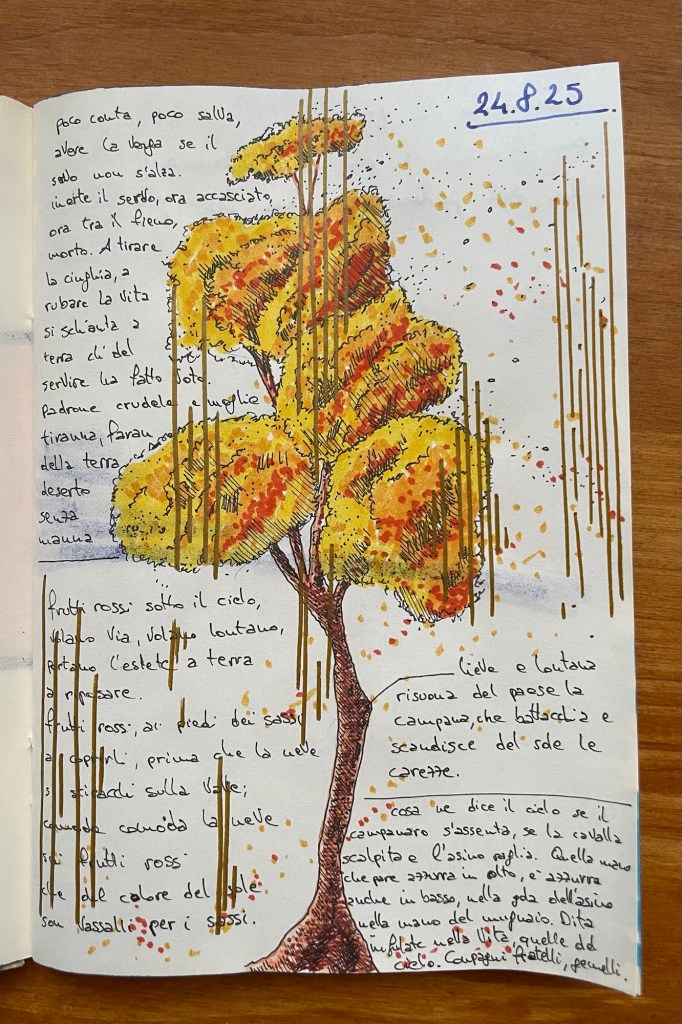 24.8.25
poco conta, poco salva,
avere la verga se il
sodo non s'alza.
inerte il servo, ora accasciato,
ora tra il fieno,
morto. A tirare
la cinghia, a
rubare la vita
si schianta a
terra chi del
servire ha fatto voto.
Padrone crudele e moglie
tiranna, faran
della terra
deserto
senza
manna
frutti rossi sotto il cielo,
volano via, volano lontano,
portano l'estete a terra
a riposare.
frutti rossi, ai piedi dei sassi
a coprirli, prima che la neve
si sdraj sulla valle;
comoda comoda la neve
sui frutti rossi
che del colore del sole
son vassalli per i sassi.
lieve e lontana
risuona del paese la
campana, che battacchia e
scandisce del sole le
carezze.
cosa ne dice il cielo se il
campanaro s'assenta, se la cavalla
scalpita e l'asino raglia. Quella mano
che pare azzurra in alto, è azzurra
anche in basso, nella gola dell'asino
nella mano del mugnaio. Dita
infilate nella vita, quelle del
cielo. Compagni fratelli, gemelli.